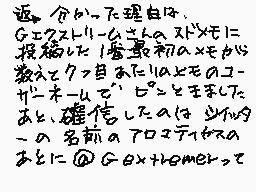 返。分かった理由は、
Gエクストリームさんのスドメモに
投稿した1番最初のメモから
数えて7つ目あたりのメモのユー
ザーネームで ピンときました
あと、確信したのは ツイッタ
ーの名前のアロマティセスの
あとに @Gextremerって